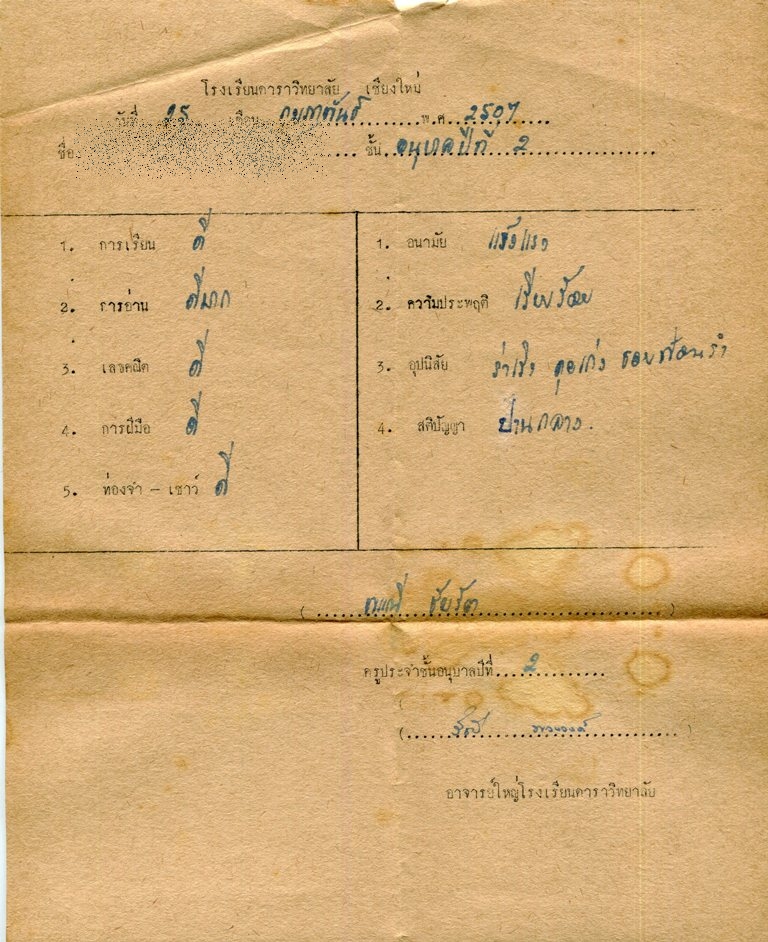 โรงเรียนดาราวิทยาลัย เชียงใหม่
วันที่ 25 เดือน กุมภาพันธ์ พ.ศ. 2507
ชื่อ ชั้น อนุบาลปีที่ 2
1. การเรียน ดี
2. การอ่าน ดีมาก
3. เลขคณิต ดี
4. การฝีมือ ดี
5. ท่องจำ - เชาว์ ดี
1. อนามัย แข็งแรง
2. ความประพฤติ เรียบร้อย
3. อุปนิสัย ร่าเริง คุยเก่ง ชอบฟ้อนรำ
4. สติปัญญา ปานกลาง.
ครูประจำชั้นอนุบาลปีที่ 2
อาจารย์ใหญ่โรงเรียนดาราวิทยาลัย